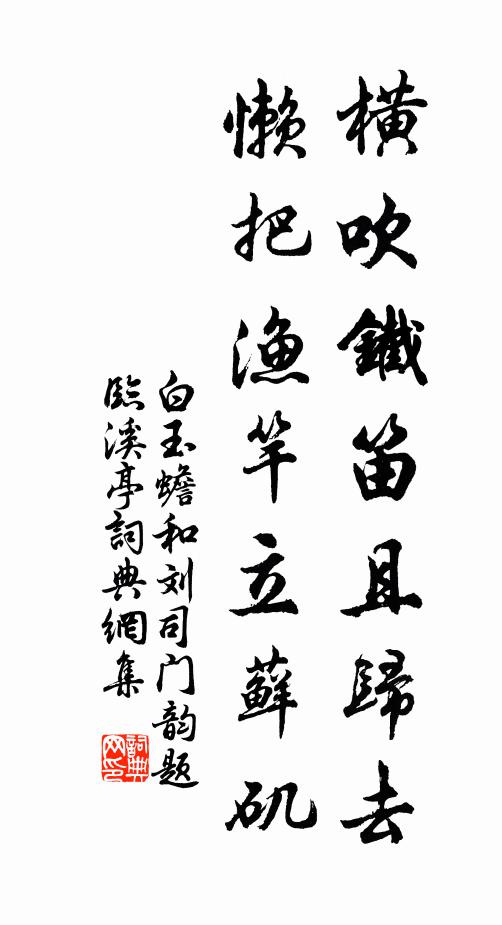 橫吹鐵笛且歸去
懶把漁竿立蘚矶
白玉蟾和刘司门韵题
臨溪亭詞典網集
詞典
网印